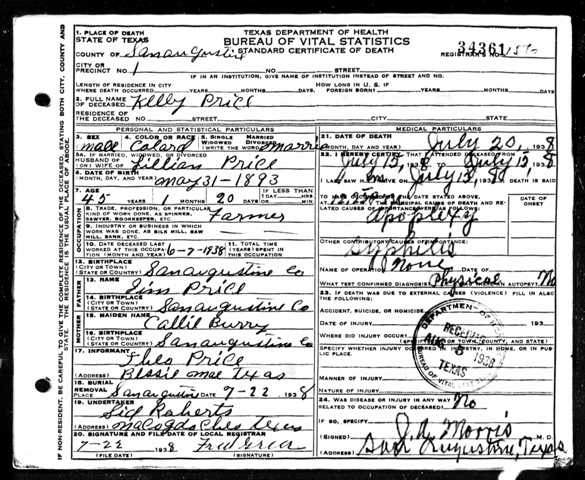 1. PLACE OF DEATH
STATE OF TEXAS
TEXAS DEPARTMENT OF HEALTH
BUREAU OF VITAL STATISTICS
STANDARD CERTIFICATE OF DEATH
COUNTY OF San augustine
34361
REGISTRAR'S NO.
CITY OR PRECINCT NO. 1 NO. STREET
IF IN AN INSTITUTION, GIVE NAME OF INSTITUTION INSTEAD OF STREET AND NO.
LENGTH OF RESIDENCE IN CITY WHERE DEATH OCCURRED YEARS MONTHS DAYS. HOW LONG IN U. S. IF FOREIGN BORN? YEARS MONTHS DAYS
2. FULL NAME OF DECEASED Kelly Price
RESIDENCE OF THE DECEASED NO. STREET CITY STATE
PERSONAL AND STATISTICAL PARTICULARS
3. SEX male
4. COLOR OR RACE Colard
5. SINGLE MARRIED WIDOWED DIVORCED (WRITE THE WORD) married
5A. IF MARRIED, WIDOWED, OR DIVORCED
HUSBAND OF (OR) WIFE OF Lillian Price
6. DATE OF BIRTH (MONTH, DAY, AND YEAR) may 31-1893
7. AGE 45 YEARS 1 MONTHS 20 DAYS
IF LESS THAN 1 DAY HOURS MIN.
OCCUPATION
8. TRADE, PROFESSION, OR PARTICULAR KIND OF WORK DONE, AS SPINNER, SAWYER, BOOKKEEPER, ETC. Farmer
9. INDUSTRY OR BUSINESS IN WHICH WORK WAS DONE, AS SILK MILL, SAW MILL, BANK, ETC.
10. DATE DECEASED LAST WORKED AT THIS OCCUPATION (MONTH AND YEAR) 6-7-1938
11. TOTAL TIME (YEARS) SPENT IN THIS OCCUPATION
12. BIRTHPLACE (CITY OR TOWN) (STATE OR COUNTRY) San augustine Co
FATHER
13. NAME Jim Price
14. BIRTHPLACE (CITY OR TOWN) (STATE OR COUNTRY) San augustine Co
MOTHER
15. MAIDEN NAME Callie
16. BIRTHPLACE (CITY OR TOWN) (STATE OR COUNTRY) San augustine Co
17. INFORMANT Theo Price
(ADDRESS) Bessie mae Texas
18. BURIAL REMOVAL PLACE San augustine DATE 7-22 1938
19. UNDERTAKER Sid Roberts
(ADDRESS) nacogdoches texas
20. SIGNATURE AND FILE DATE OF LOCAL REGISTRAR
7-22 1938
(SIGNATURE)
MEDICAL PARTICULARS
21. DATE OF DEATH (MONTH, DAY AND YEAR) July 20, 1938
22. I HEREBY CERTIFY THAT I ATTENDED DECEASED FROM July 15, 1938 TO 15 1938
I LAST SAW HIM ALIVE ON July 15 1938, DEATH IS SAID
THE DATE STATED ABOVE.
DATE OF ONSET
apoplexy
OTHER CONTRIBUTORY CAUSES OF IMPORTANCE:
Syphilis
NAME OF OPERATION None
WHAT TEST CONFIRMED DIAGNOSIS? Physical AUTOPSY? No
23. IF DEATH WAS DUE TO EXTERNAL CAUSES (VIOLENCE) FILL IN ALSO THE FOLLOWING:
ACCIDENT, SUICIDE, OR HOMICIDE
DATE OF INJURY 193
WHERE DID INJURY OCCUR (SPECIFY CITY OR TOWN, COUNTY, AND STATE)
SPECIFY WHETHER INJURY OCCURRED IN INDUSTRY, IN HOME, OR IN PUBLIC PLACE.
MANNER OF INJURY
NATURE OF INJURY
DEPARTMENT OF HEALTH
RECEIVED
AUG 5 1938
TEXAS
BUREAU OF VITAL STATISTICS
24. WAS DISEASE OR INJURY IN ANY WAY RELATED TO OCCUPATION OF DECEASED? No
IF SO, SPECIFY
(SIGNED) Morris M. D.
(ADDRESS) San Augustine, Texas